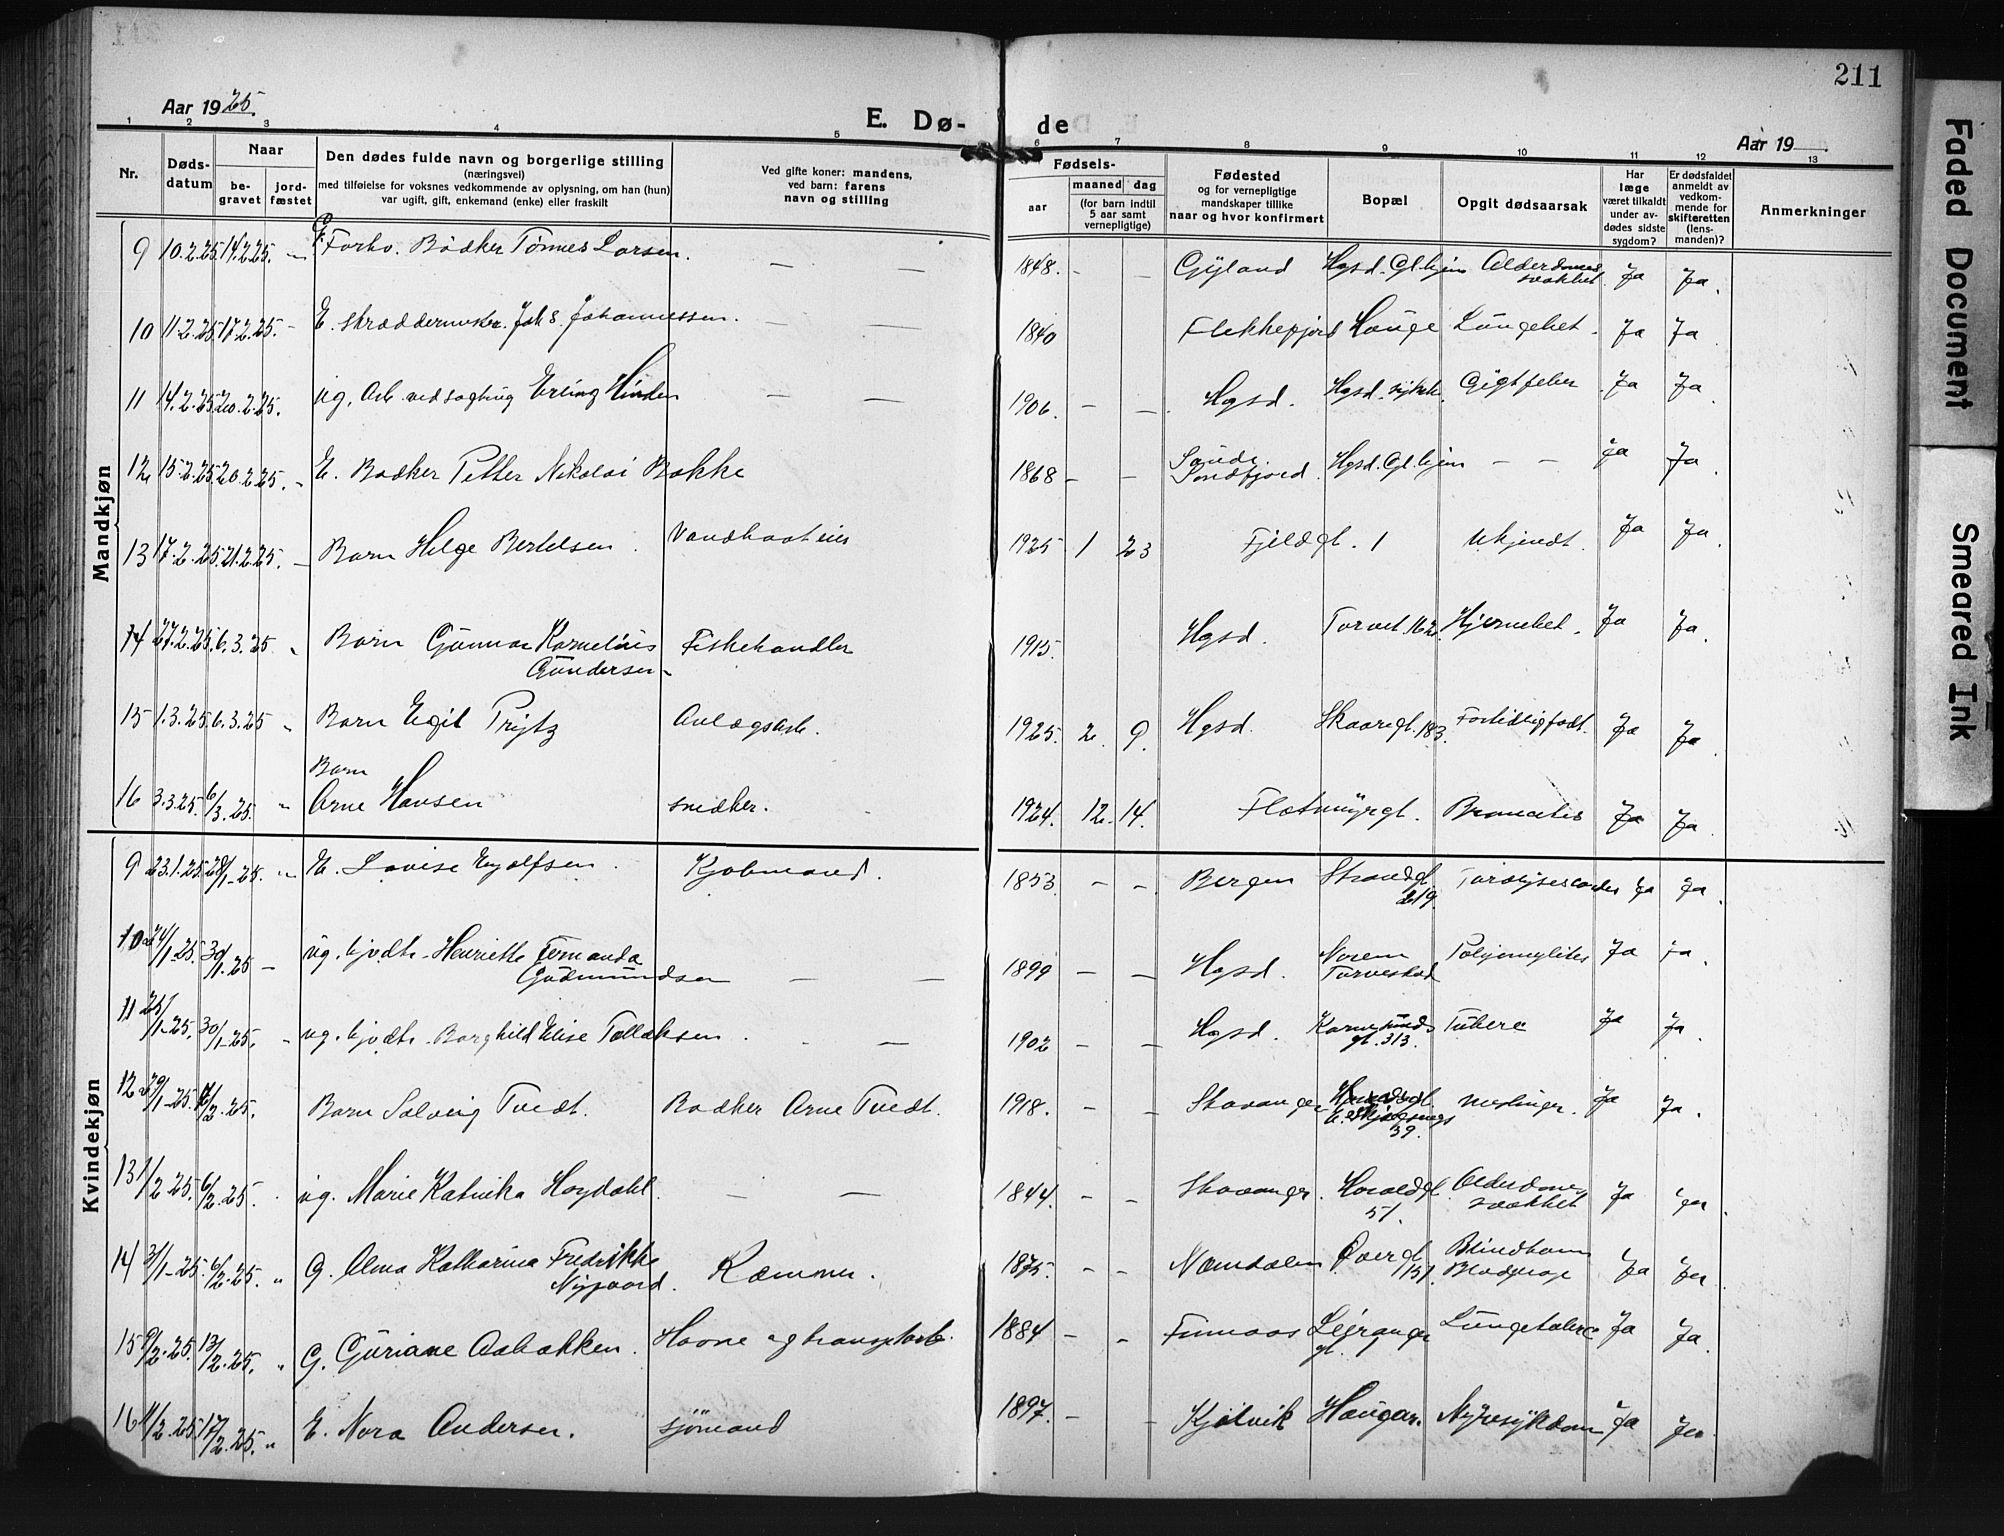 211
Aar 1925.
E. Dø- de
Aar 19
1 2 3 4 5 6 7 8 9 10 11 12 13
Nr.
Døds-
datum
Naar
be-
gravet
jord-
fæstet
Den dødes fulde navn og borgerlige stilling
(næringsvei)
med tilføielse for voksnes vedkommende av oplysning, om han (hun)
var ugift, gift, enkemand (enke) eller fraskilt
Ved gifte koner: mandens,
ved barn: farens
navn og stilling
Fødsels-
aar
maaned
dag
(for barn indtil
5 aar samt
vernepligtige)
Fødested
og for vernepligtige
mandskaper tillike
naar og hvor konfirmert
Bopæl
Opgit dødsaarsak
Har
læge
været tilkaldt
under av-
dødes sidste
sygdom?
Er dødsfaldet
anmeldt av
vedkom-
mende for
skifteretten
(lens-
manden)?
Anmerkninger
Mandkjøn
9 10.2.25 14.2.25. Forhv. Bödker Tönnes Larsen. — — 1848. - - Gyland Hgsd. Gl.hjem Alderdoms svakhet. Ja Ja.
10 11.2.25 17.2.25. - E. skræddermester. Joh s. Johannessen. — — 1840 Flekkefjord Hauge Lungebet. Ja Ja
11 14.2.25 20.2.25. ug. Arb. ved sagbrug Erling Hinden — — 1906. - - Hgsd. Hgsd. sykeh. Gigtfeber Ja Ja
12 15.2.25 20.2.25. E. Bödker Petter Nikolai Bakke 1868 - - Söndfjord. Hgsd. Gl.hjem - - Ja Ja
13 17.2.25 21.2.25. Barn Helge Bertelsen. 1925 1 23 Fjeldgt. 1 Ukjendt. Ja Ja.
14 27.2.25. 6.3.25 Barn Gunnar Kornelius Gundersen - Fiskehandler 1915. Hgsd. Torvet 162 Hjernebet. Ja Ja.
15 1.3.25. 6.3.25 " Barn Egil Prytz Anlægsarb. 1925. 2. 9. Hgsd. Skaaregt. 183. Fortidligfödt. Ja Ja
16 3.3.25 6/3.25. " Barn Arne Hansen snedker. 1924. 12. 14. Flotmyrgt. Ja Ja.
Kvindekjøn
9 23.1.25. 28/1-25. E. Lovise Eyolfsen. Kjöbmand. 1853. - - Bergen Strandgt 219. Ja Ja.
10 24/1-25. 30/1-25 - ug. hjvdt. Henriette Tomanda Gudmundsen — — 1899 - - Hgsd. Norem Torvestad Poliomylites Ja Ja.
11 25/1-25. 30/1-25. ug. hjvdt. Borghild Elise Tollaksen. 1902 - - Hgsd. Karmsunds gt. 313. Tuberc Ja Ja.
12 29/1-25. /2.25. Barn Solveig Tvedt. Bödker Arne Tvedt. 1918. - - Stavanger 39. Meslinger. Ja Ja.
13 1/2 25. 6/2.25. ug. Marie Katrika Høydahl. — — 1844. - - Stavanger. Haraldgt. 51. Alderdoms svakhet Ja Ja.
14 31/1-25. 6/2.25. " G. Alma Katharina Fredrikke Nygaard. Kæmner. 1875. - - Namdalen Övergt 151. Ja Ja
15 9/2.25. 13/2.25. " G. Guriane Aabakken. Havne og transportarb. 1884 - - Finnaas gt. Lungetuberc Ja Ja.
16 11/2.25 17/2.25. " E. Nora Andersen. sjömand 1897. - - Kjölvik Haugar. Nyresykdom Ja Ja.
Faded Document
Smeared Ink